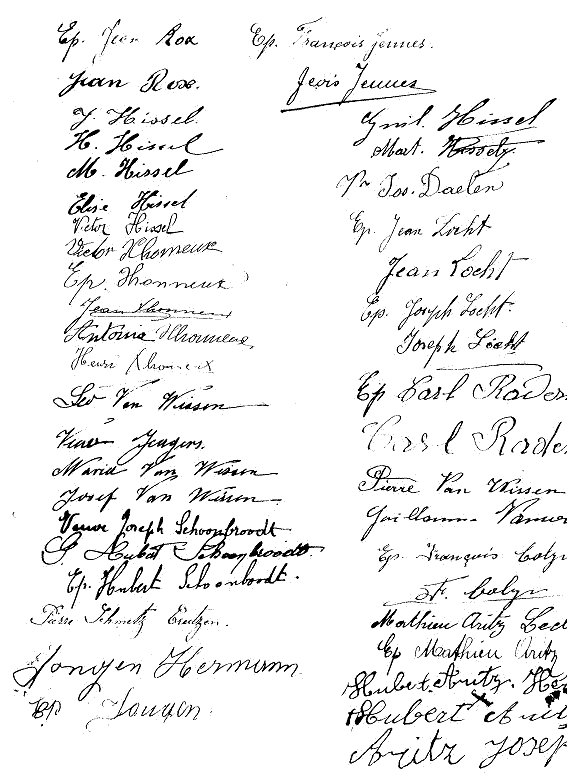 Ep. Jean Rox
Jean Rox.
J. Hissel.
H. Hissel
M. Hissel
Elise Hissel
Victor Hissel
Victor Xhonneux
Ep. Xhonneux
Jean Xhonneux
Antonia Xhonneux
Henri Xhonneux
Leo Van Wissen
Jengers.
Maria Van Wissen
Josef Van Wissen
Joseph Schoonbroodt
Hubert Schoonbroodt
Ep. Hubert Schoonbroodt.
Pierre Schmetz
Jongen Hermann
Ep Jongen
Ep. François Jennes.
Jennes
Hissel
Mart. Hissel
Jos. Daelen
Ep. Jean Locht
Jean Locht
Ep. Joseph Locht.
Joseph Locht
Ep Carl Rader
Carl Rader
Pierre Van Wissen
Guillaume
Ep. François
Mathieu Aritz
Ep Mathieu Aritz
Hubert Aritz.
Hubert
Aritz Josep